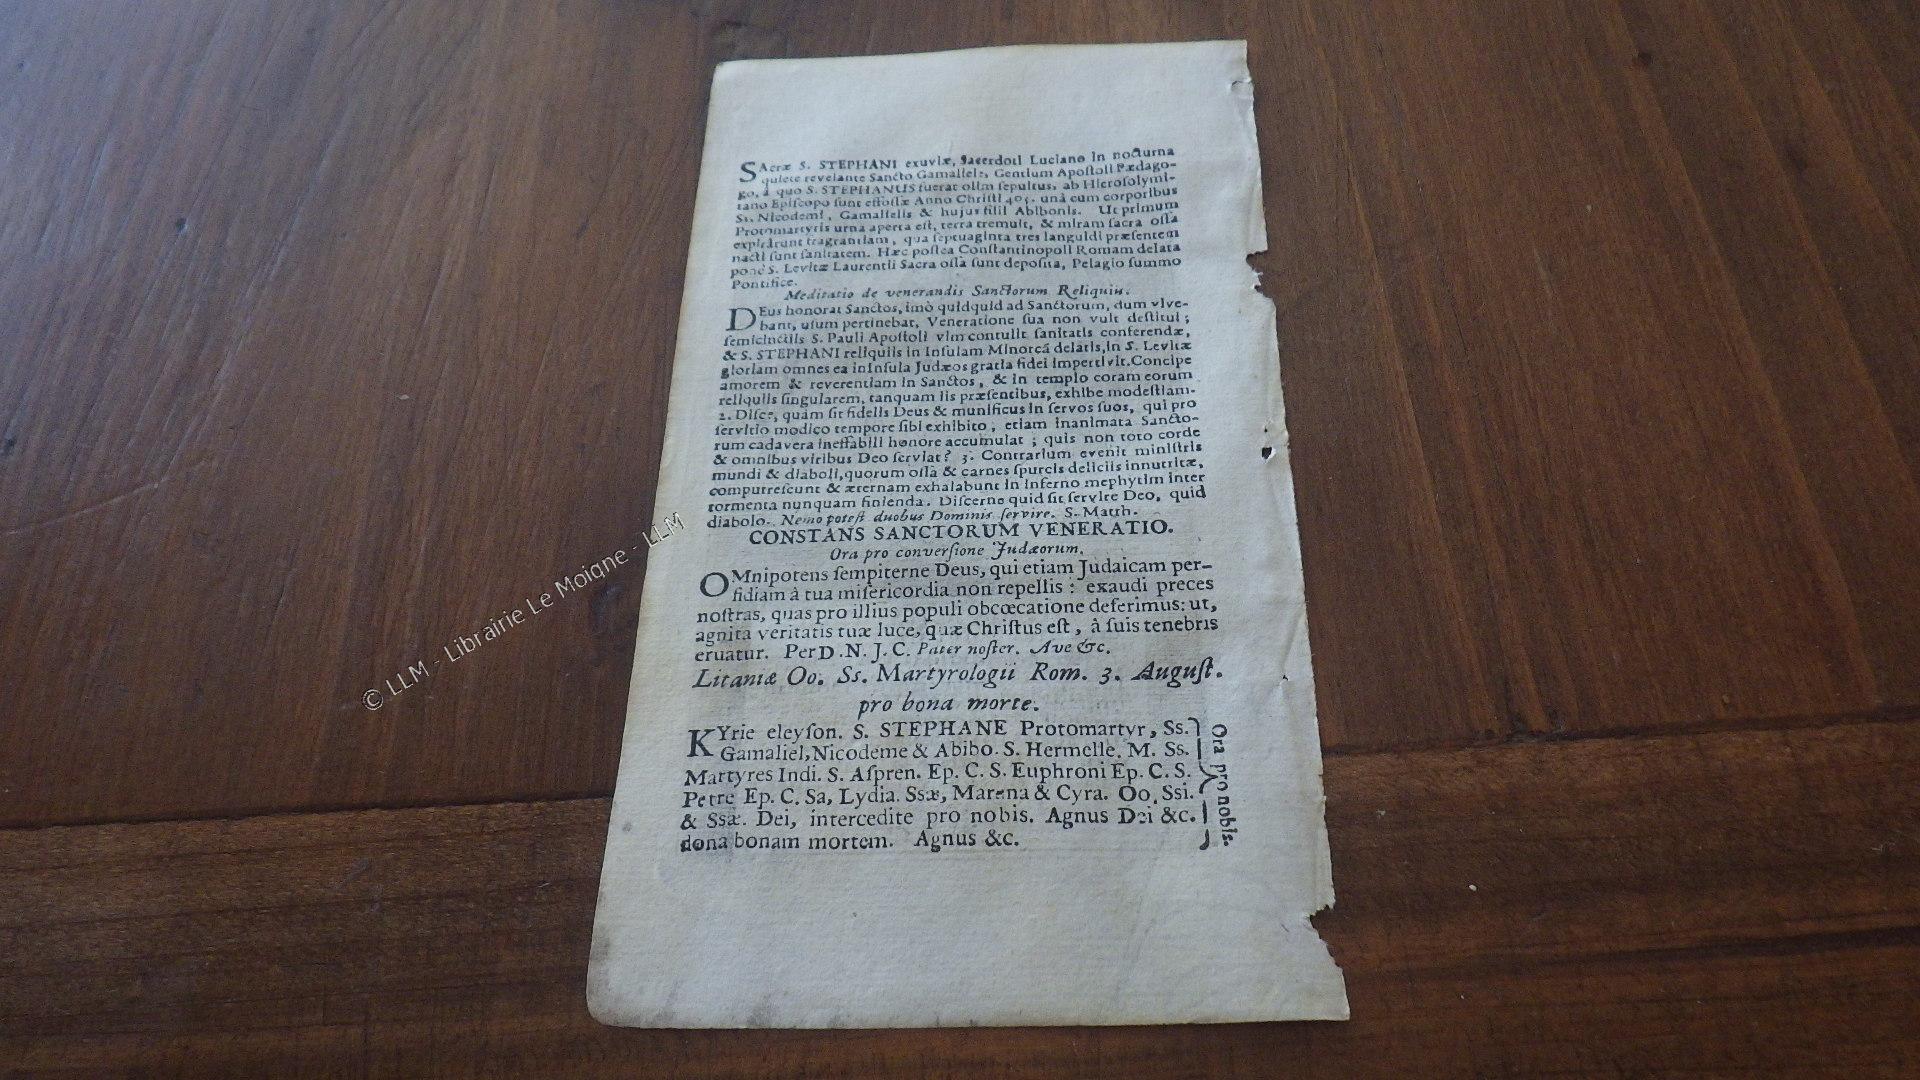 SAcræ S. STEPHANI exuviæ, Sacerdoti Luciano in nocturna
quiete revelante Sancto Gamaliele, Gentium Apostoli Pædago-
go, à quo S. STEPHANUS fuerat olim sepultus, ab Hierosolymi-
tano Episcopo sunt effossæ Anno Christi 405. unà cum corporibus
Ss. Nicodemi, Gamalielis & hujus filii Abibonis. Ut primum
Protomartyris urna aperta est, terra tremuit, & miram sacra ossa
expirârunt fragrantiam, qua septuaginta tres languidi præsentem
nacti sunt sanitatem. Hæc postea Constantinopoli Romam delata
ponè S. Levitæ Laurentii Sacra ossa sunt deposita, Pelagio summo
Pontifice.
Meditatio de venerandis Sanctorum Reliquiis.
DEus honorat Sanctos, imò quidquid ad Sanctorum, dum vive-
bant, usum pertinebat, Veneratione sua non vult destitui;
semicinctiis S. Pauli Apostoli vim contulit sanitatis conferendæ,
& S. STEPHANI reliquiis in Insulam Minorcâ delatis, in S. Levitæ
gloriam omnes ea in Insula Judæos gratia fidei impertivit. Concipe
amorem & reverentiam in Sanctos, & in templo coram eorum
reliquiis singularem, tanquam iis præsentibus, exhibe modestiam.
2. Disce, quàm sit fidelis Deus & munificus in servos suos, qui pro
servitio modico tempore sibi exhibito, etiam inanimata Sancto-
rum cadavera ineffabili honore accumulat; quis non toto corde
& omnibus viribus Deo serviat? 3. Contrarium evenit ministris
mundi & diaboli, quorum ossa & carnes spurcis deliciis innutritæ,
computrescunt & æternam exhalabunt in inferno mephytim inter
tormenta nunquam finienda. Discerne quid sit servire Deo, quid
diabolo. Nemo potest duobus Dominis servire. S. Matth.
CONSTANS SANCTORUM VENERATIO.
Ora pro conversione Judæorum.
OMnipotens sempiterne Deus, qui etiam Judaicam per-
fidiam à tua misericordia non repellis: exaudi preces
nostras, quas pro illius populi obcœcatione deferimus: ut,
agnita veritatis tuæ luce, quæ Christus est, à suis tenebris
eruatur. Per D. N. J. C. Pater noster. Ave &c.
Litaniæ Oo. Ss. Martyrologii Rom. 3. August.
pro bona morte.
KYrie eleyson. S. STEPHANE Protomartyr, Ss.
Gamaliel, Nicodeme & Abibo. S. Hermelle. M. Ss.
Martyres Indi. S. Aspren. Ep. C. S. Euphroni Ep. C. S.
Petre Ep. C. Sa, Lydia. Ssæ, Marana & Cyra. Oo. Ssi.
& Ssæ. Dei, intercedite pro nobis. Agnus Dei &c.
dona bonam mortem. Agnus &c.
Ora pro nobis.
© LLM - Librairie Le Moigne - LLM